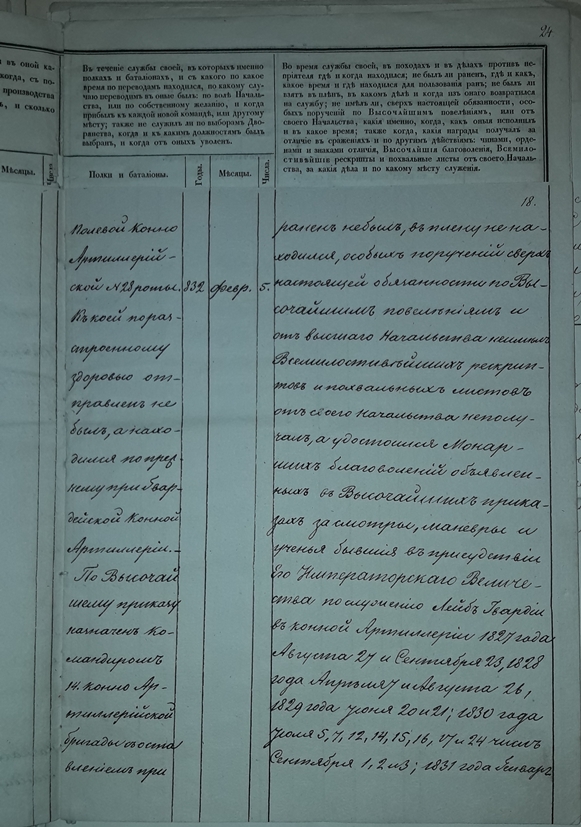 24
въ оной ка-
когда, съ по-
производства
ъ, и сколько
Мѣсяцы.
Числа.
Въ теченіе службы своей, въ которыхъ именно
полкахъ и баталіонахъ, и съ какого по какое
время по переводамъ находился, по какому слу-
чаю переводимъ въ оные былъ: по волѣ Началь-
ства, или по собственному желанію, и когда
прибылъ къ каждой новой командѣ, или другому
мѣсту; также не служилъ ли по выборамъ Дво-
рянства, когда и къ какимъ должностямъ былъ
выбранъ, и когда отъ оныхъ уволенъ.
Полки и баталіоны.
Годы.
Мѣсяцы.
Числа.
Во время службы своей, въ походахъ и въ дѣлахъ противъ не-
пріятеля гдѣ и когда находился; не былъ ли раненъ, гдѣ и какъ,
какое время и гдѣ находился для пользованія ранъ; не былъ ли
взятъ въ плѣнъ, въ какомъ дѣлѣ и когда изъ онаго возвратился
на службу; не имѣлъ ли, сверхъ настоящей обязанности, осо-
быхъ порученій по Высочайшимъ повелѣніямъ, или отъ
своего Начальства, какія именно, когда, какъ оныя исполнилъ
и въ какое время; также когда, какія награды получалъ за
отличіе въ сраженіяхъ и по другимъ дѣйствіямъ: чинами, орде-
нами и знаками отличія, Высочайшія благоволенія, Всемило-
стивѣйшіе рескрипты и похвальные листы отъ своего Началь-
ства, за какія дѣла и по какому мѣсту служенія.
18.
Полевой Конно
Артиллерій-
ской №28 роты. 832 февр. 5.
Къ коей по раз-
строенному
здоровью от-
правленъ не
былъ, а нахо-
дился по преж-
нему при Гвар-
дейской Конной
Артиллеріи.
По Высочай
шему приказу
назначенъ Ко-
мандиромъ
14. конно Ар-
тиллерійской
бригады съ оста
вленіемъ при
раненъ небылъ, въ плену не на-
ходился, особыхъ порученій сверхъ
настоящей обязанности по Вы-
сочайшимъ повелѣніямъ и
отъ высшаго Начальства неимѣлъ
Всемилостивѣйшихъ рескрип-
товъ и похвальныхъ листовъ
отъ своего начальства неполу-
чалъ, а удостоился Монар-
шихъ благоволеній объявлен-
ныхъ въ Высочайшихъ прика-
захъ за смотры, маневры и
ученья бывшія въ присудствіи
Его Императорскаго Величе-
ства по служенію Лейбъ Гвардіи
въ конной Артиллеріи 1827 года
Августа 27 и Сентября 23, 1828
года Апрѣля 7 и Августа 26,
1829 года Іюня 20 и 21; 1830 года
Іюля 5, 7, 12, 14, 15, 16, 17 и 24 числъ
Сентября 1, 2 и 3; 1831 года Января